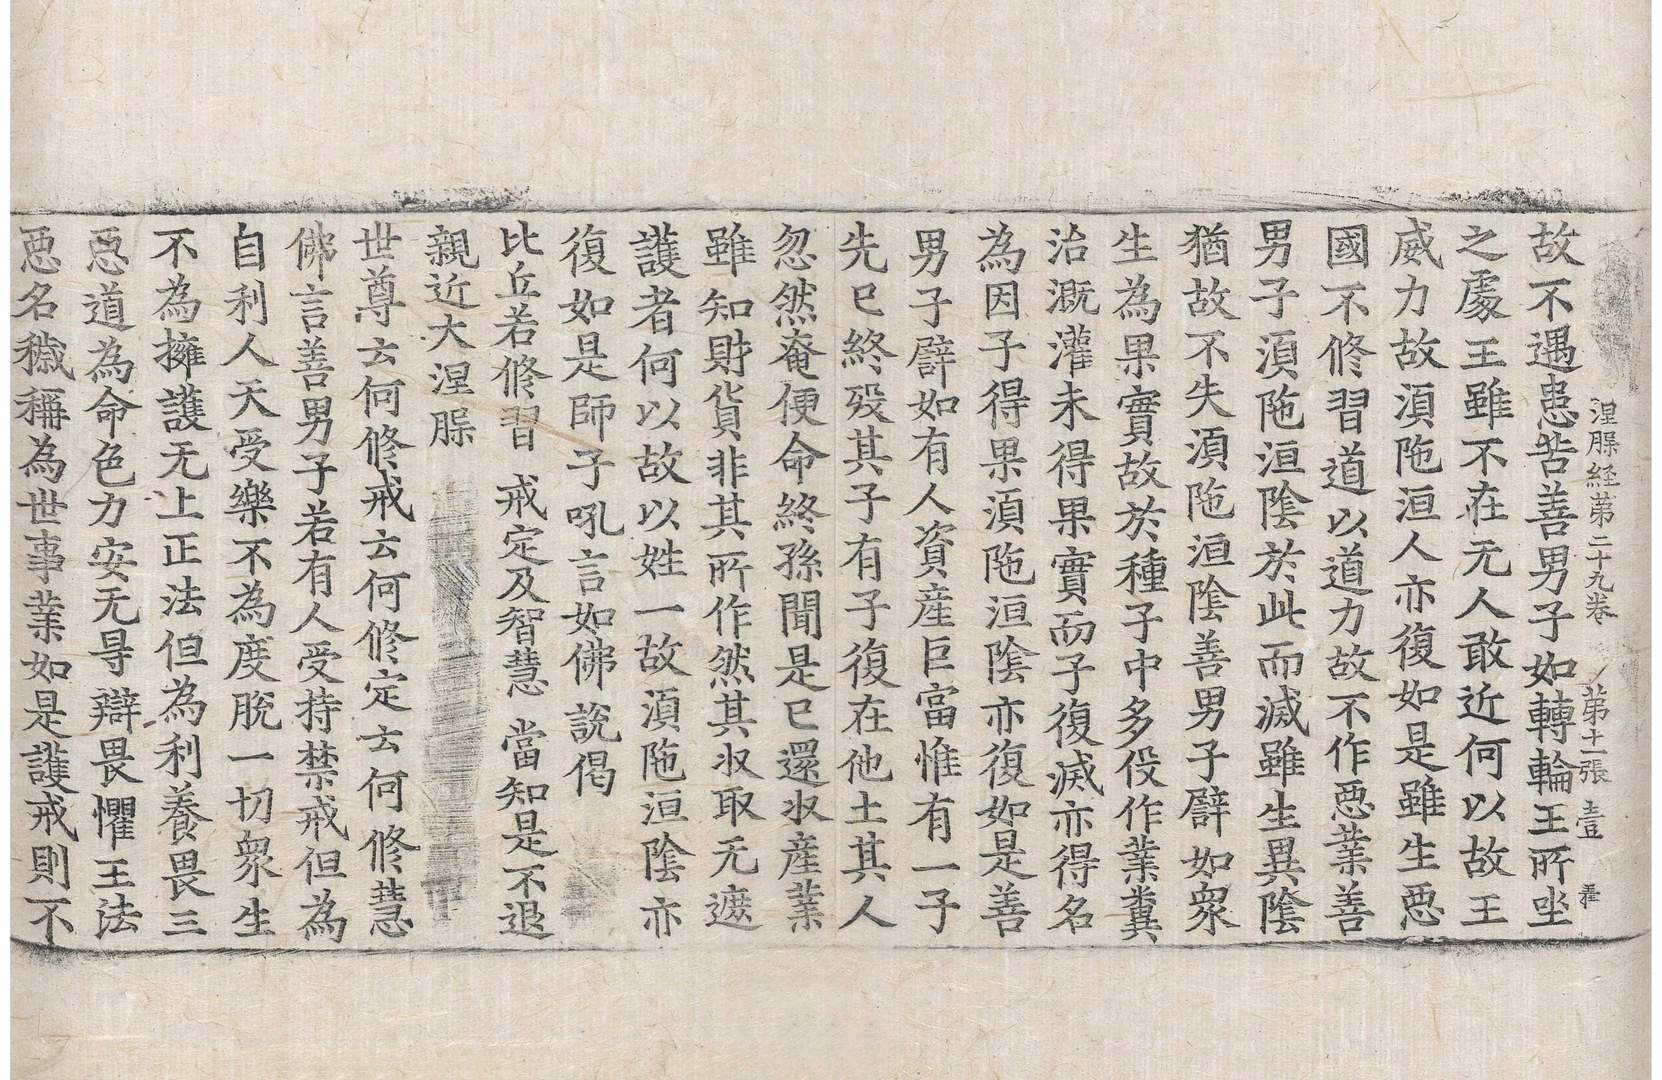 涅脲経苐二十九卷 苐十一張 壹
故不遇患苦善男子如轉輪王所坐
之處王雖不在无人敢近何以故王
威力故湏陁洹人亦復如是雖生惡
國不修習道以道力故不作惡業善
男子湏陁洹隂於此而滅雖生異隂
猶故不失湏陁洹隂善男子譬如衆
生為果實故於種子中多伇作業糞
治溉灌未得果實而子復滅亦得名
為因子得果湏陁洹隂亦復如是善
男子譬如有人資産巨富惟有一子
先已終歿其子有子復在他土其人
忽然奄便命終孫聞是已還収産業
雖知財貨非其所作然其収取无遮
護者何以故以姓一故湏陁洹隂亦
復如是師子吼言如佛說偈
比丘若修習 戒定及智慧 當知是不退
親近大涅脲
世尊云何修戒云何修定云何修慧
佛言善男子若有人受持禁戒但為
自利人天受樂不為度脫一切衆生
不為擁護无上正法但為利養畏三
惡道為命色力安无㝵辯畏懼王法
惡名穢稱為世事業如是護戒則不